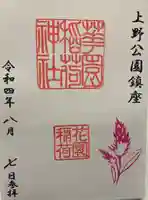 上野公園鎮座
花園
稲荷
神社
花園
稲荷
令和四年八月
七日参拝